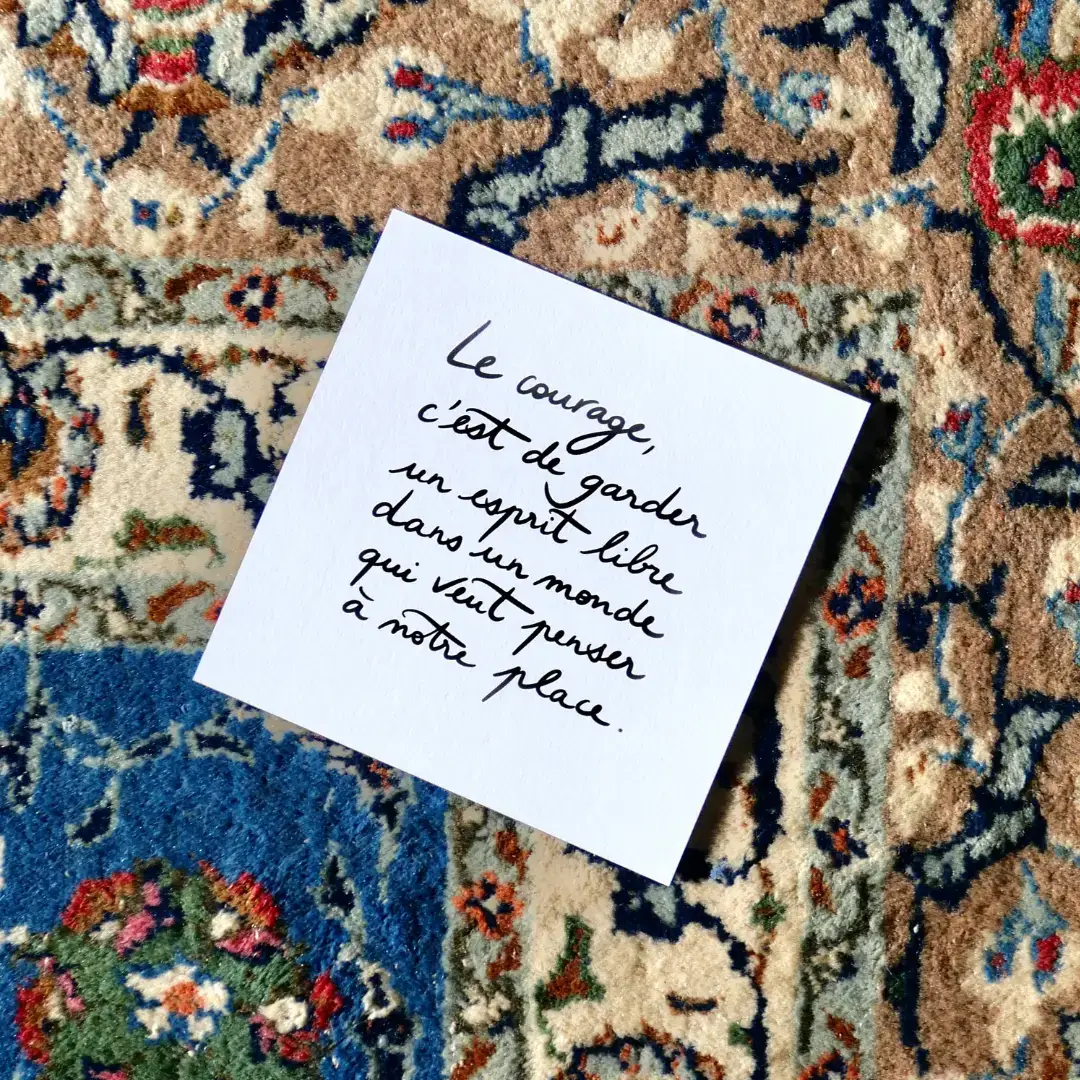 Le courage,
c'est de garder
un esprit libre
dans un monde
qui veut penser
à notre place.